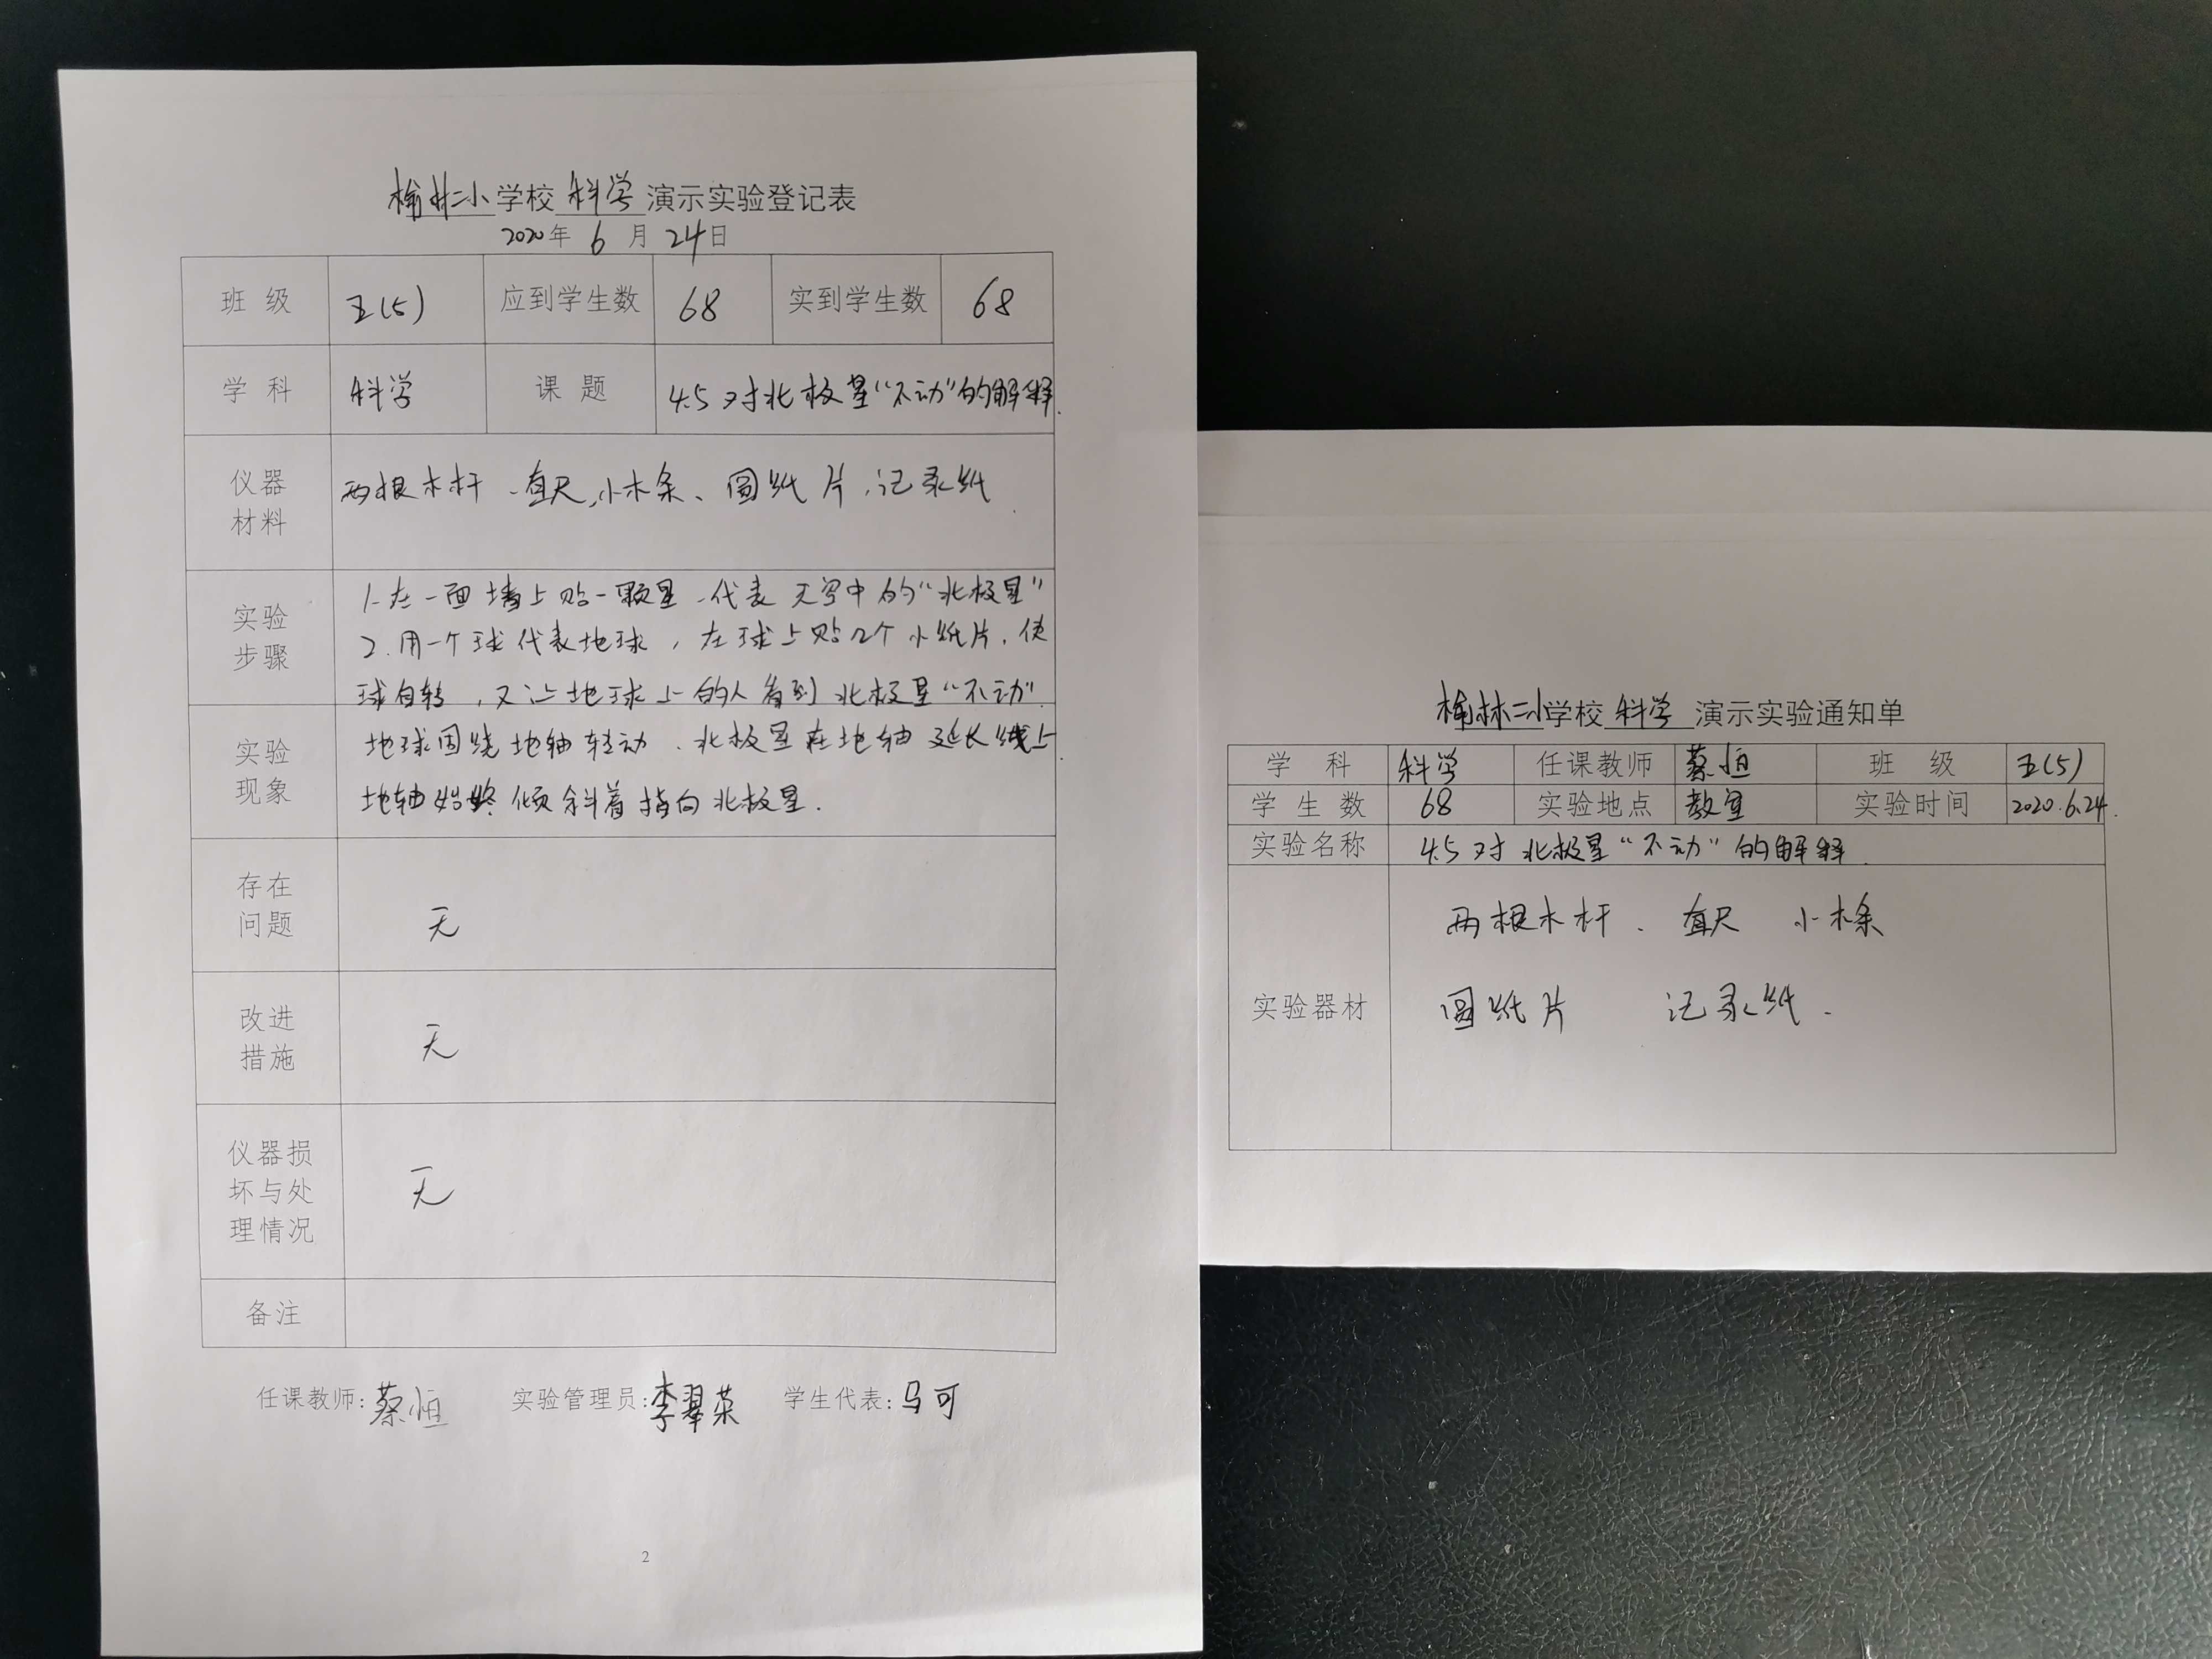 榆林二小学校 科学 演示实验登记表
2020年 6 月 24日
班 级 五(5) 应到学生数 68 实到学生数 68
学 科 科学 课 题 4.5 对北极星“不动”的解释.
仪器
材料
两根木杆、直尺,小木条、圆纸片,记录纸
实验
步骤
1.在一面墙上贴一颗星、代表天空中的“北极星”
2.用一个球代表地球,在球上贴2个小纸片,使
球自转,又让地球上的人看到北极星“不动”
实验
现象
地球围绕地轴转动、北极星在地轴延长线上
地轴始终倾斜着指向北极星.
存在
问题
无
改进
措施
无
仪器损
坏与处
理情况
无
备注
任课教师:蔡恒 实验管理员:李翠荣 学生代表:马可
2
榆林二小学校 科学 演示实验通知单
学 科 科学 任课教师 蔡恒 班 级 五(5)
学 生 数 68 实验地点 教室 实验时间 2020.6.24.
实验名称 4.5 对北极星“不动”的解释.
实验器材
两根木杆、直尺 小木条
圆纸片 记录纸.